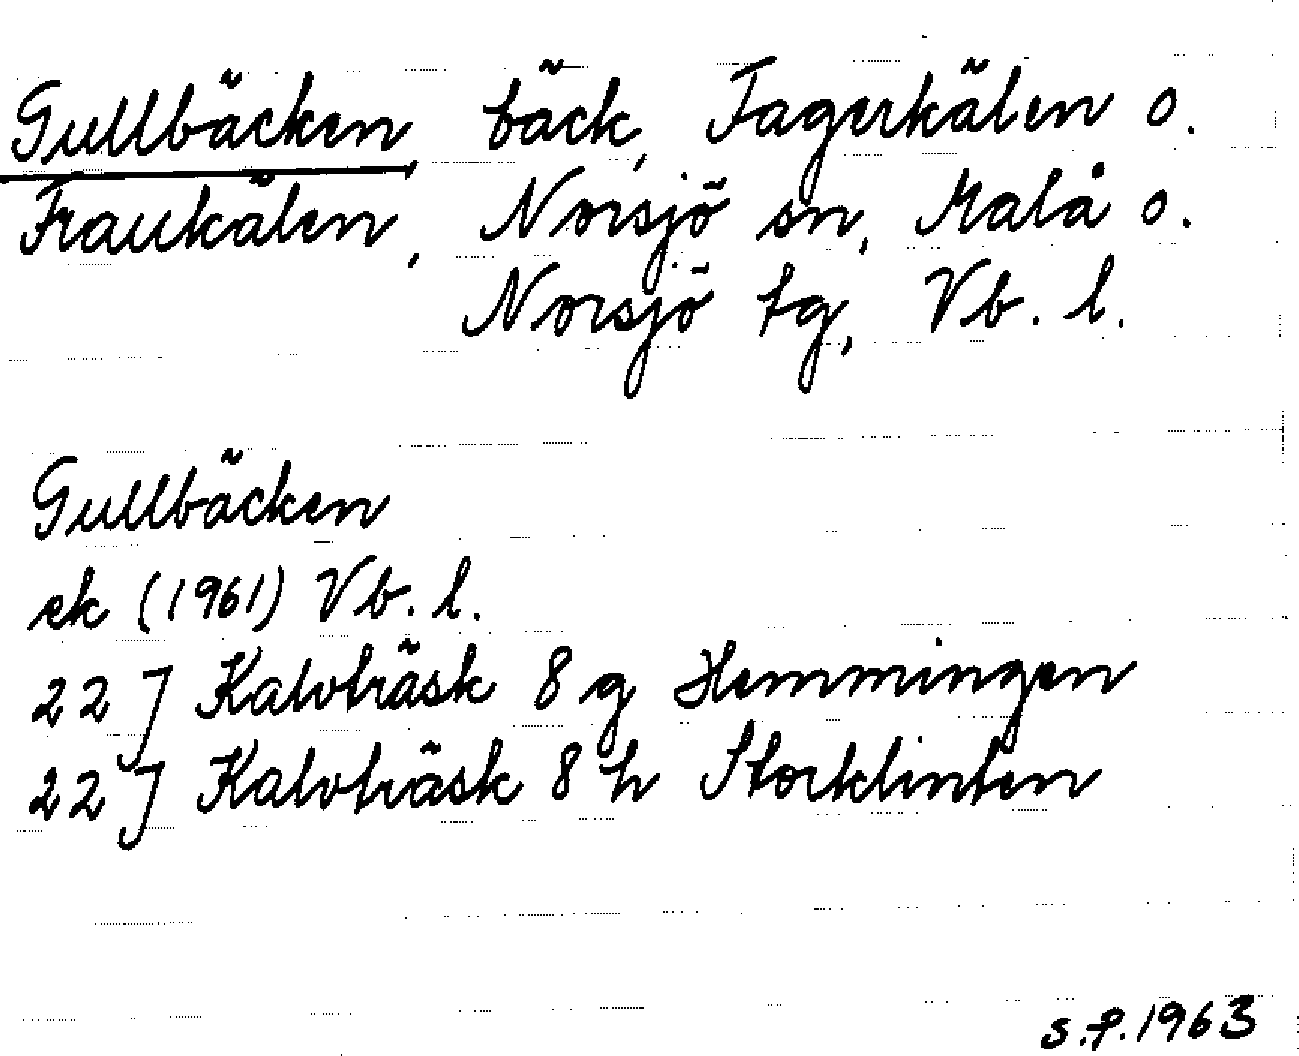 Gullbäcken, bäck, Fagerkälen o.
Fraukälen, Norsjö sn, Malå o.
Norsjö tg, Vb. l.
Gullbäcken
ek (1961) Vb. l.
22 J Kalvträsk 8 g Hemmingen
22 J Kalvträsk 8 h Storklinten
s.f. 1963